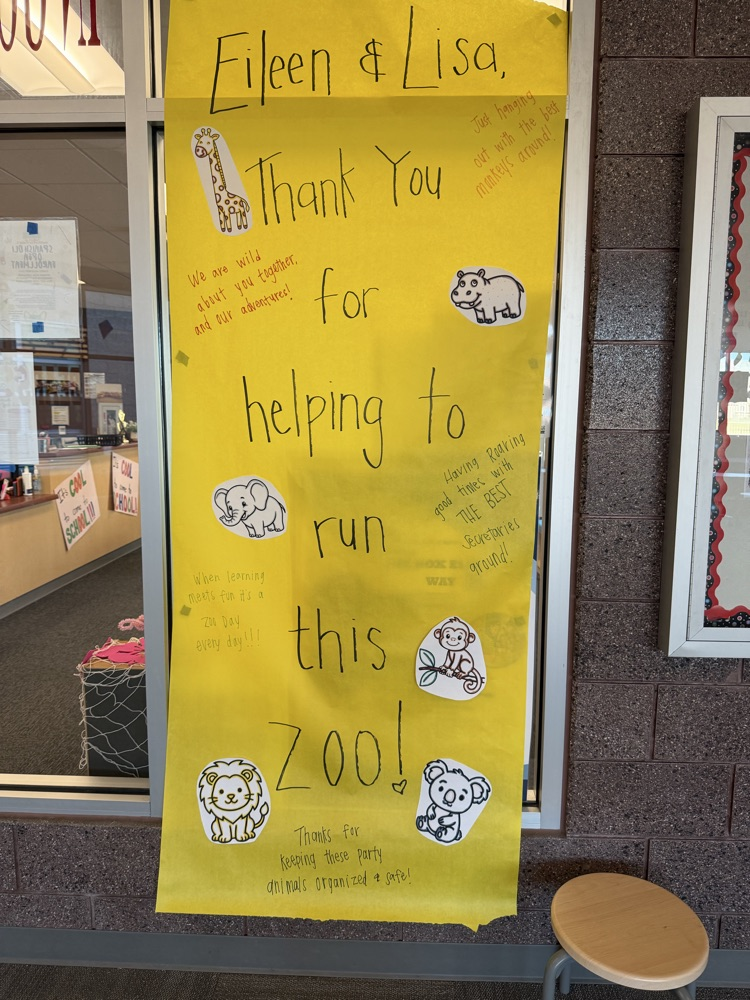 Eileen & Lisa,
Just hanging
out with the best
monkeys around!
Thank You
We are wild
about you together,
and our adventures!
for
helping to
Having Roaring
good times with
THE BEST
Secretaries
around!
run
When learning
meets fun it's a
Zoo Day
every day!!!
this
ZOO!
Thanks for
keeping these party
animals organized & safe!
SPANISH DLI
OPEN
ENROLLMENT
It's COOL
to come to
SCHOOL!!!
WAY